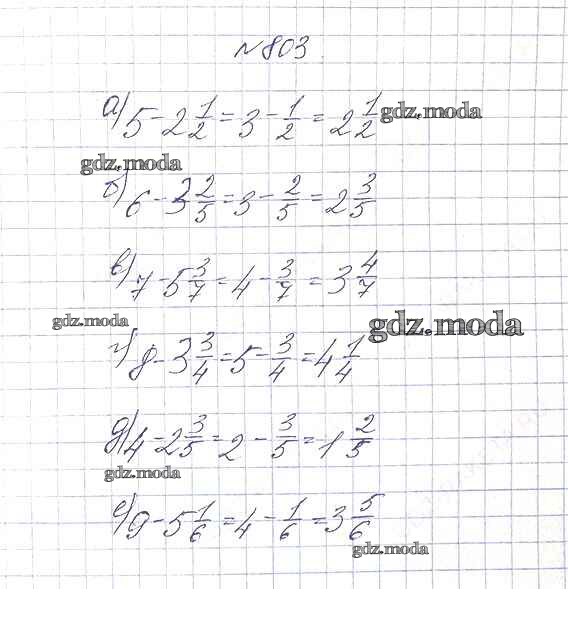 №803
а) 5 - 2 1/2 = 3 - 1/2 = 2 1/2 gdz.moda
gdz.moda
б) 6 - 3 2/5 = 3 - 2/5 = 2 3/5
в) 7 - 5 3/7 = 4 - 3/7 = 3 4/7
gdz.moda gdz.moda
г) 8 - 3 3/4 = 5 - 3/4 = 4 1/4
д) 4 - 2 3/5 = 2 - 3/5 = 1 2/5
gdz.moda
е) 9 - 5 1/6 = 4 - 1/6 = 3 5/6
gdz.moda